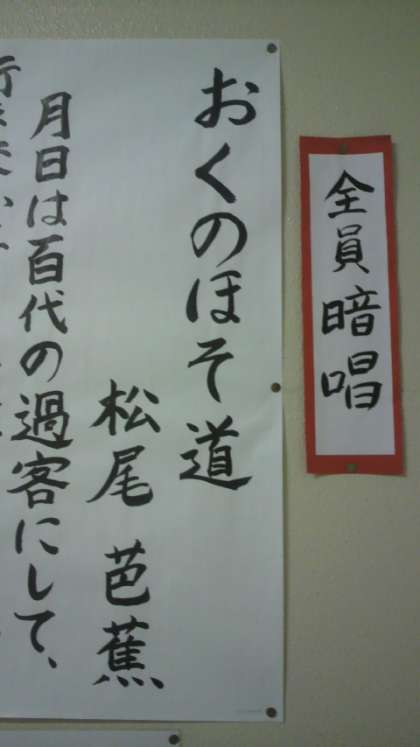 全員暗唱
おくのほそ道
松尾 芭蕉
月日は百代の過客にして、